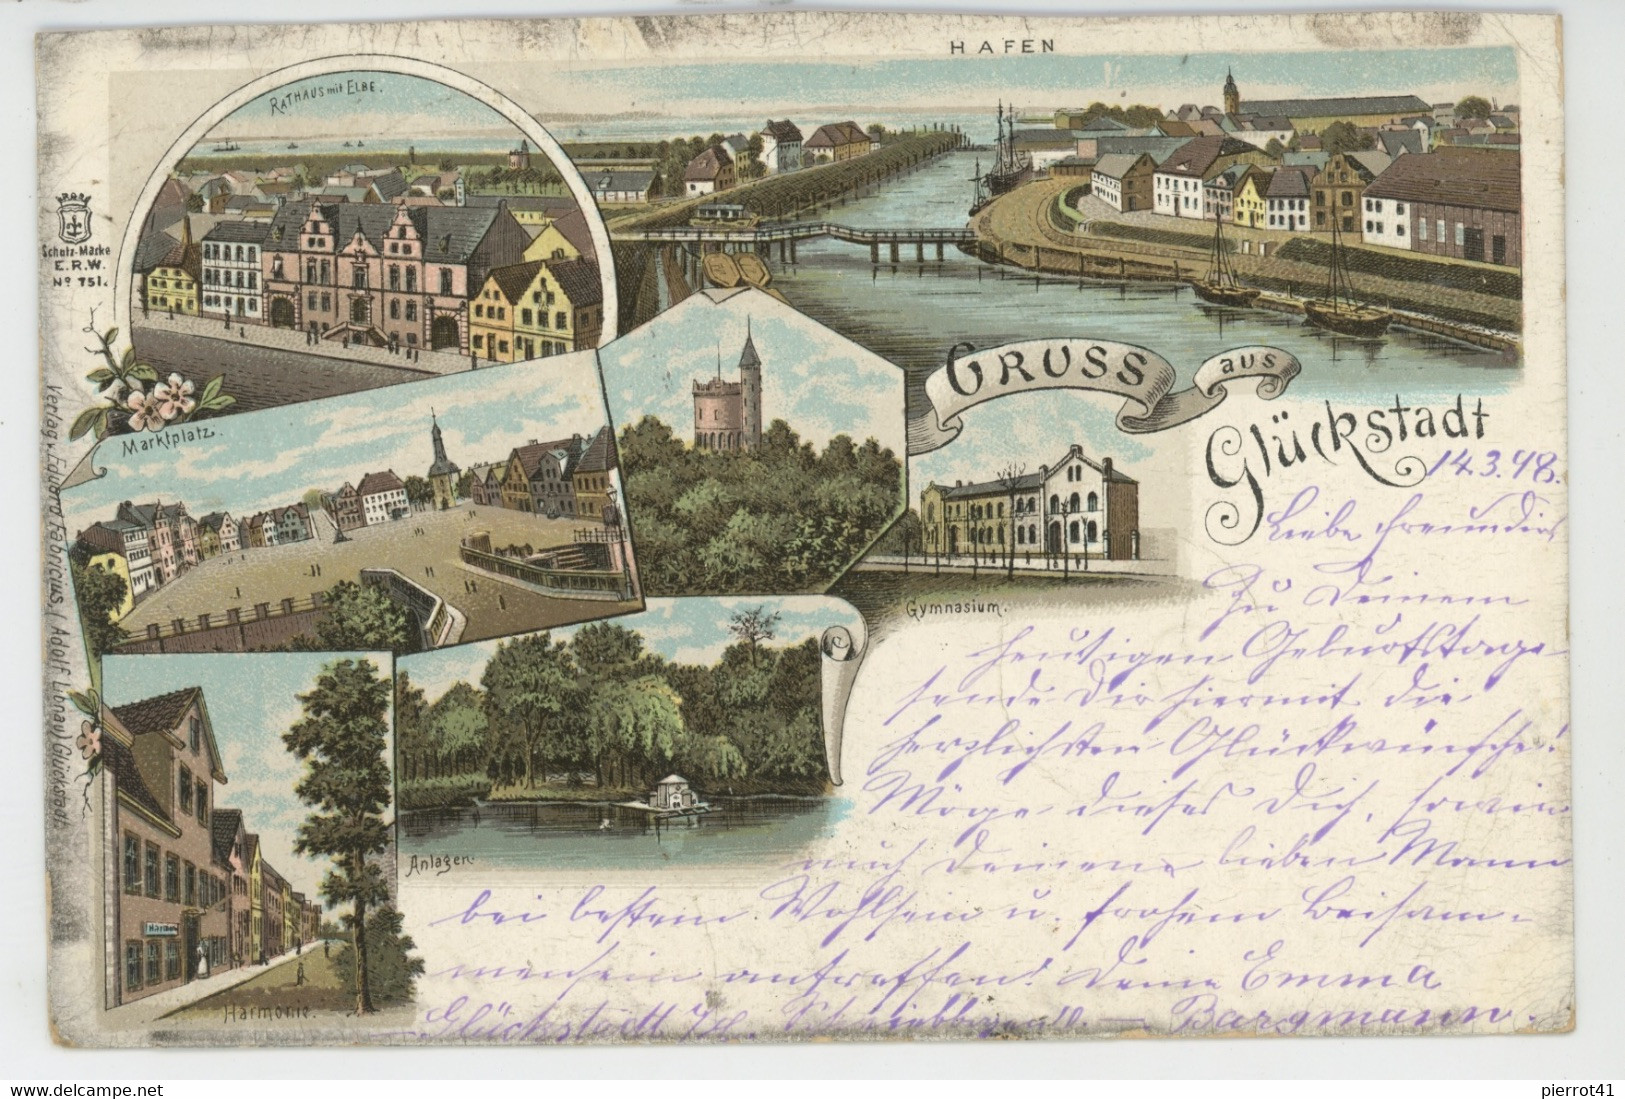 HAFEN
RATHAUS mit ELBE.
Schutz-Marke
E.R.W.
No 751.
GRUSS
aus
Glückstadt
Marktplatz.
Gymnasium.
Anlagen.
Harmonie.
Verlag v. Eduard Fabricius, (Adolf Lunau) Glückstadt
14.3.98.
Liebe Freundin
Zu Deinem
heutigen Geburtstage
sende Dir hiermit die
herzlichsten Glückwünsche!
Möge dieses Dich, sowie
auch Deinen lieben Mann
bei bestem Wohlsein u. frohem Beisam-
mensein antreffen! Deine Emma
Glückstadt Bargmann.
Hinweis auf die Urheberrechte
pierrot41